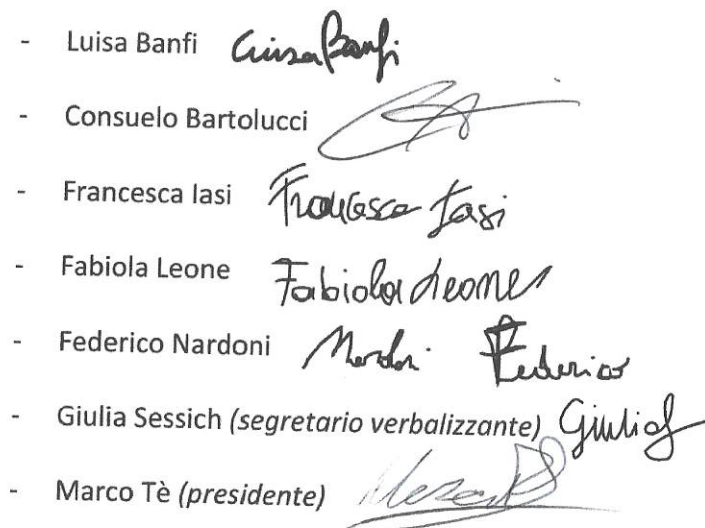 - Luisa Banfi Luisa Banfi
- Consuelo Bartolucci
- Francesca Iasi Francesca Iasi
- Fabiola Leone Fabiola Leone
- Federico Nardoni Nardoni Federico
- Giulia Sessich (segretario verbalizzante) Giulia S
- Marco Tè (presidente)